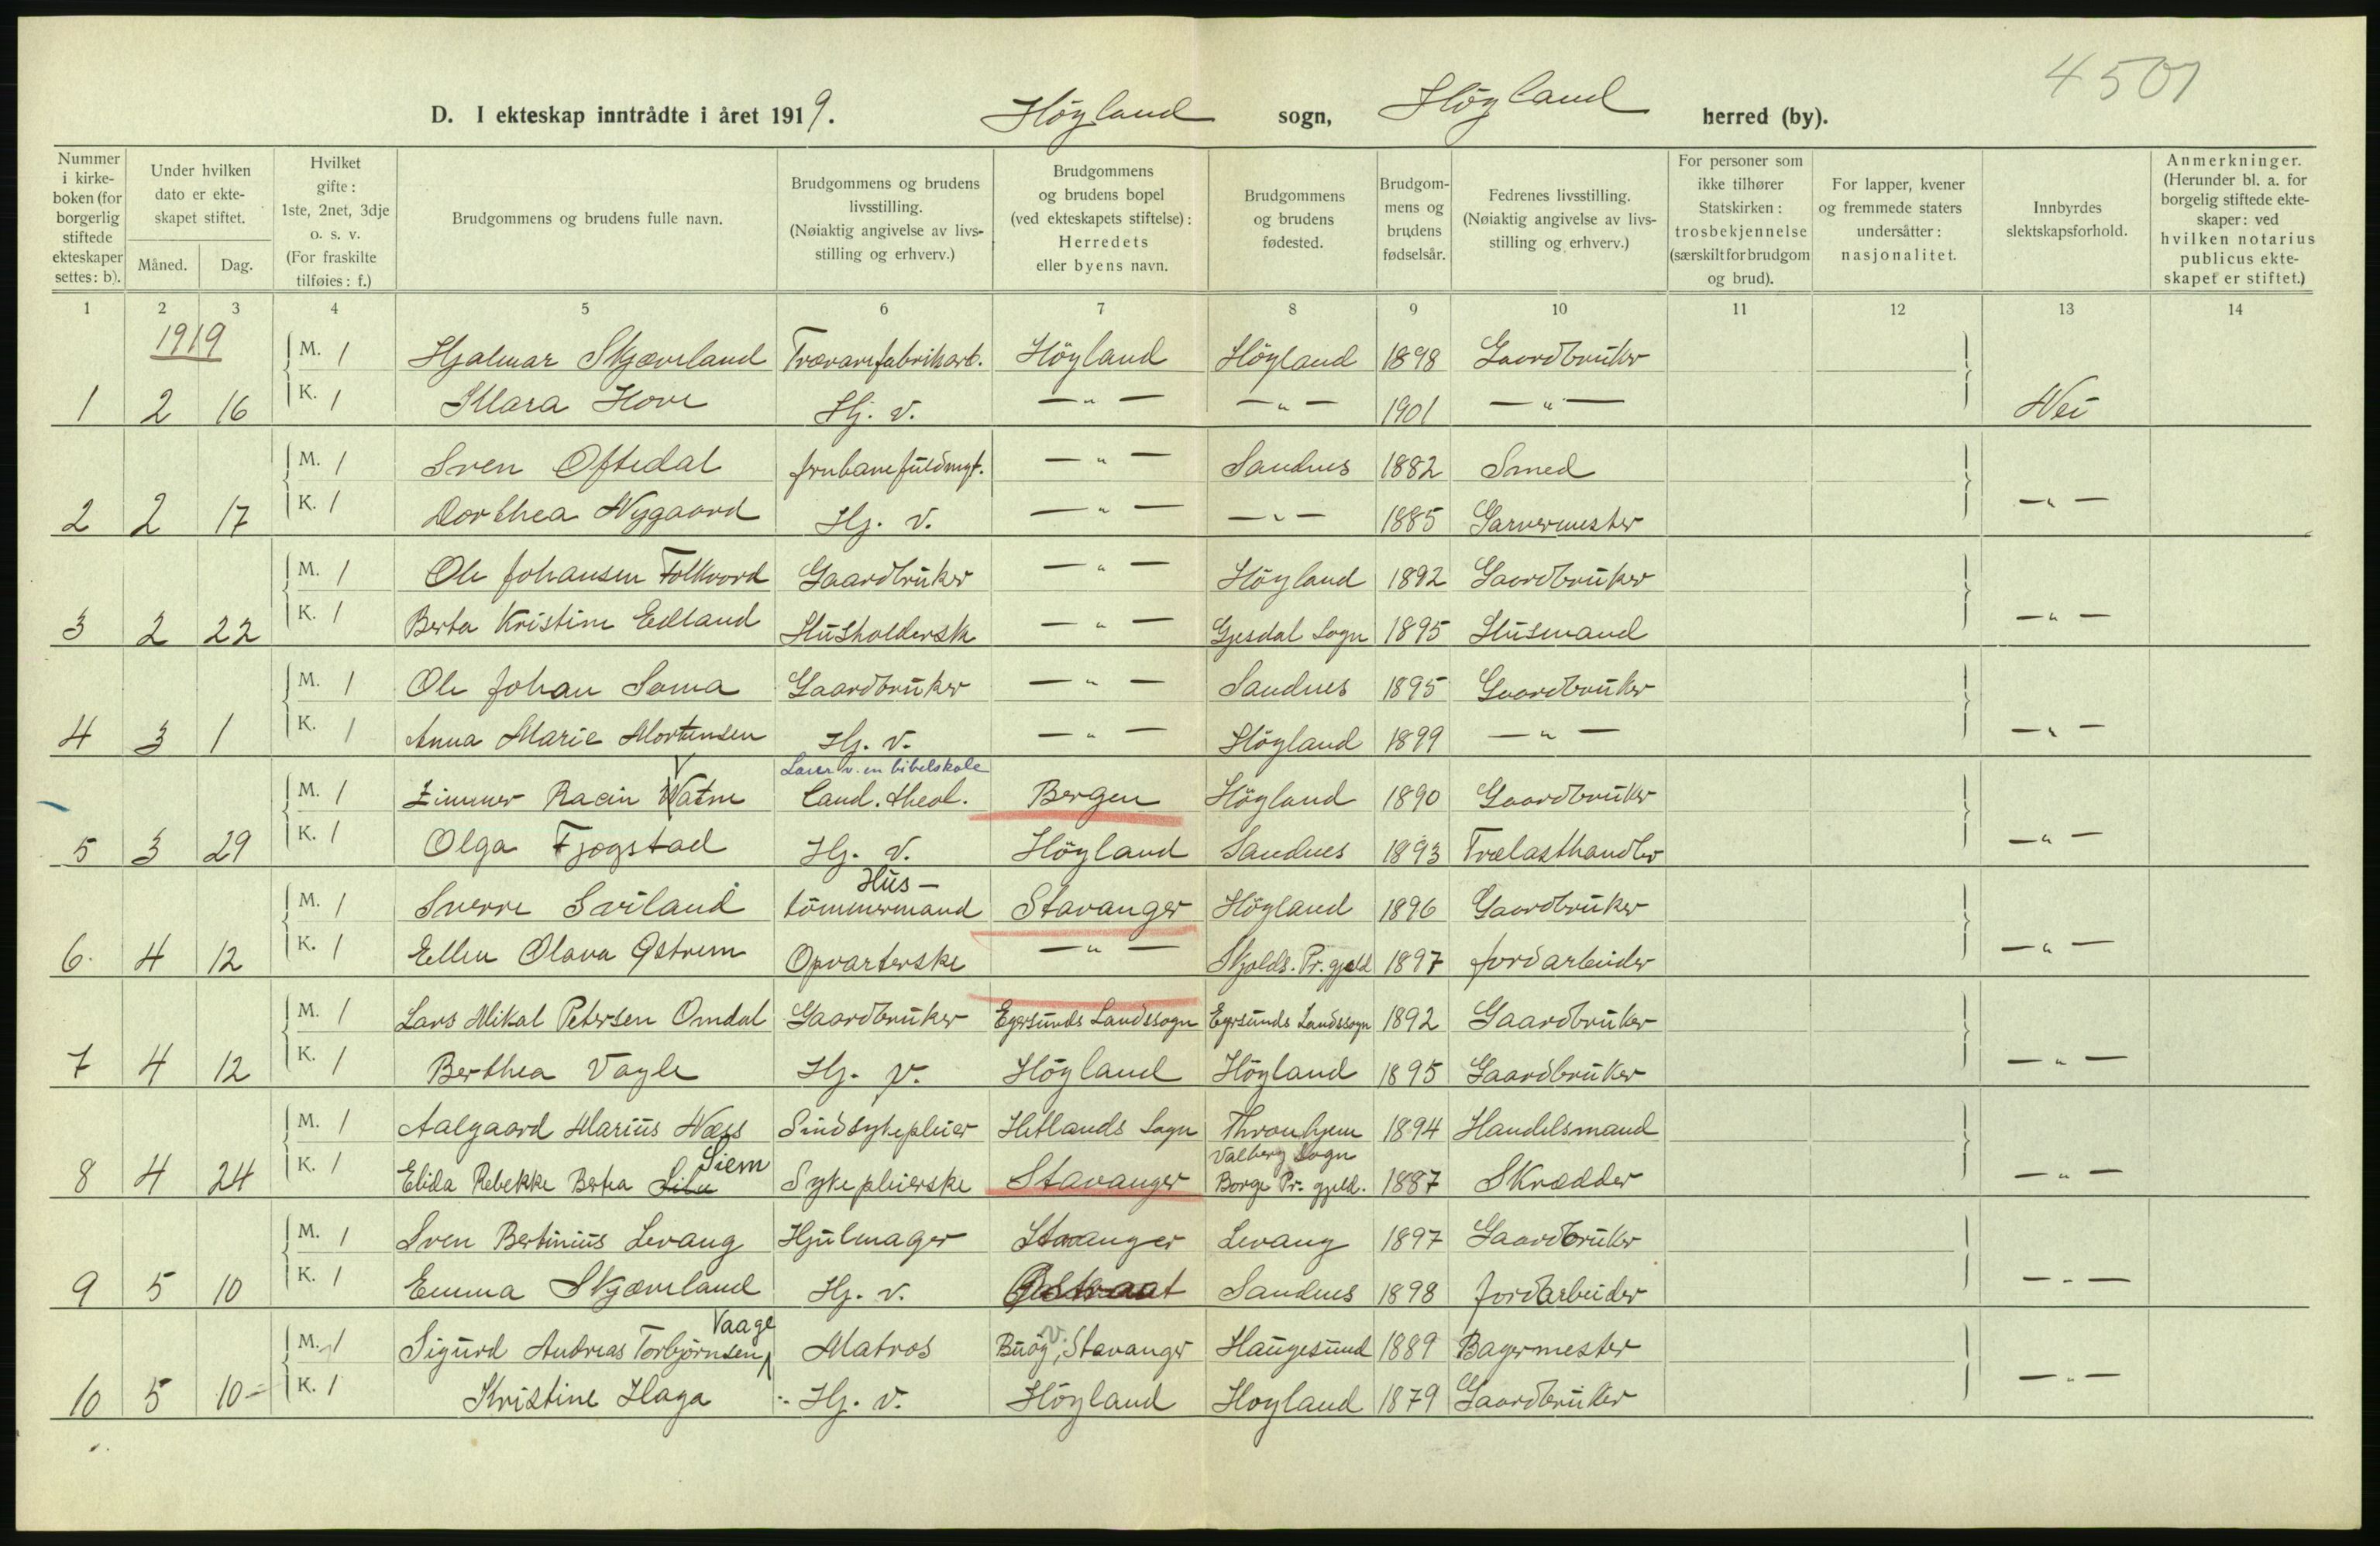 4501
D. I ekteskap inntrådte i året 1919. Höyland sogn, Höyland herred (by).
Nummer i kirkeboken (for borgerlig stiftede ekteskaper settes: b).
Under hvilken dato er ekteskapet stiftet.
Måned. Dag.
Hvilket gifte: 1ste, 2net, 3dje o. s. v. (For fraskilte tilføies: f.)
Brudgommens og brudens fulle navn.
Brudgommens og brudens livsstilling. (Nøiaktig angivelse av livsstilling og erhverv.)
Brudgommens og brudens bopel (ved ekteskapets stiftelse): Herredets eller byens navn.
Brudgommens og brudens fødested.
Brudgommens og brudens fødselsår.
Fedrenes livsstilling. (Nøiaktig angivelse av livsstilling og erhverv.)
For personer som ikke tilhører Statskirken: trosbekjennelse (særskilt for brudgom og brud).
For lapper, kvener og fremmede staters undersåtter: nasjonalitet.
Innbyrdes slektskapsforhold.
Anmerkninger. (Herunder bl. a. for borgelig stiftede ekteskaper: ved hvilken notarius publicus ekteskapet er stiftet.)
1 2 3 4 5 6 7 8 9 10 11 12 13 14
1919
M. 1 Hjalmar Skjæveland Trævarefabrikarb. Höyland Höyland 1898 Gaardbruker
1 2 16 K. 1 Klara Hove Hj. v. — " — — " — 1901 — " — Nei
M. 1 Sven Oftedal Jernbanefuldmgt. — " — Sandnes 1882 Smed
2 2 17 K. 1 Dorthea Nygaard Hj. v. — " — — " — 1885 Garvermester — " —
M. 1 Ole Johansen Folkvord Gaardbruker — " — Höyland 1892 Gaardbruker
3 2 22 K. 1 Berta Kristine Edland Husholdersk — " — Gjesdal Sogn 1895 Husmand — " —
M. 1 Ole Johan Soma Gaardbruker — " — Sandnes 1895 Gaardbruker
4 3 1 K. 1 Anna Marie Mortensen Hj. v. — " — Höyland 1899 — " — — " —
Lærer v. en bibelskole
M. 1 Zimmer Racin Watne Cand. theol. Bergen Höyland 1890 Gaardbruker
5 3 29 K. 1 Olga Fjogstad Hj. v. Höyland Sandnes 1893 Trælasthandler — " —
Hus-
M. 1 Sverre Sviland tömmermand Stavanger Höyland 1896 Gaardbruker
6 4 12 K. 1 Ellen Olava Østrem Opvarterske — " — Skjolds. Pr. gjeld 1897 Jordarbeider — " —
M. 1 Lars Mikal Petersen Omdal Gaardbruker Egersunds Landssogn Egersunds Landssogn 1892 Gaardbruker
7 4 12 K. 1 Berthea Vagle Hj. v. Höyland Höyland 1895 Gaardbruker — " —
M. 1 Aalgaard Marius Næss Sindsykepleier Hetlands Sogn Thronhjem 1894 Handelsmand
Siem Valberg Sogn
8 4 24 K. 1 Elida Rebekke Berta Sykepleierske Stavanger Borge Pr. gjeld. 1887 Skrædder — " —
M. 1 Sven Bertinius Levang Hjulmager Stavanger Levang 1897 Gaardbruker
9 5 10 K. 1 Emma Skjæveland Hj. v. Sandnes 1898 Jordarbeider — " —
Vaage
M. 1 Sigurd Andreas Torbjørnsen Matros Buøy, Stavanger Haugesund 1889 Bagermester
10 5 10 K. 1 Kristine Haga Hj. v. Höyland Hoyland 1879 Gaardbruker — " —